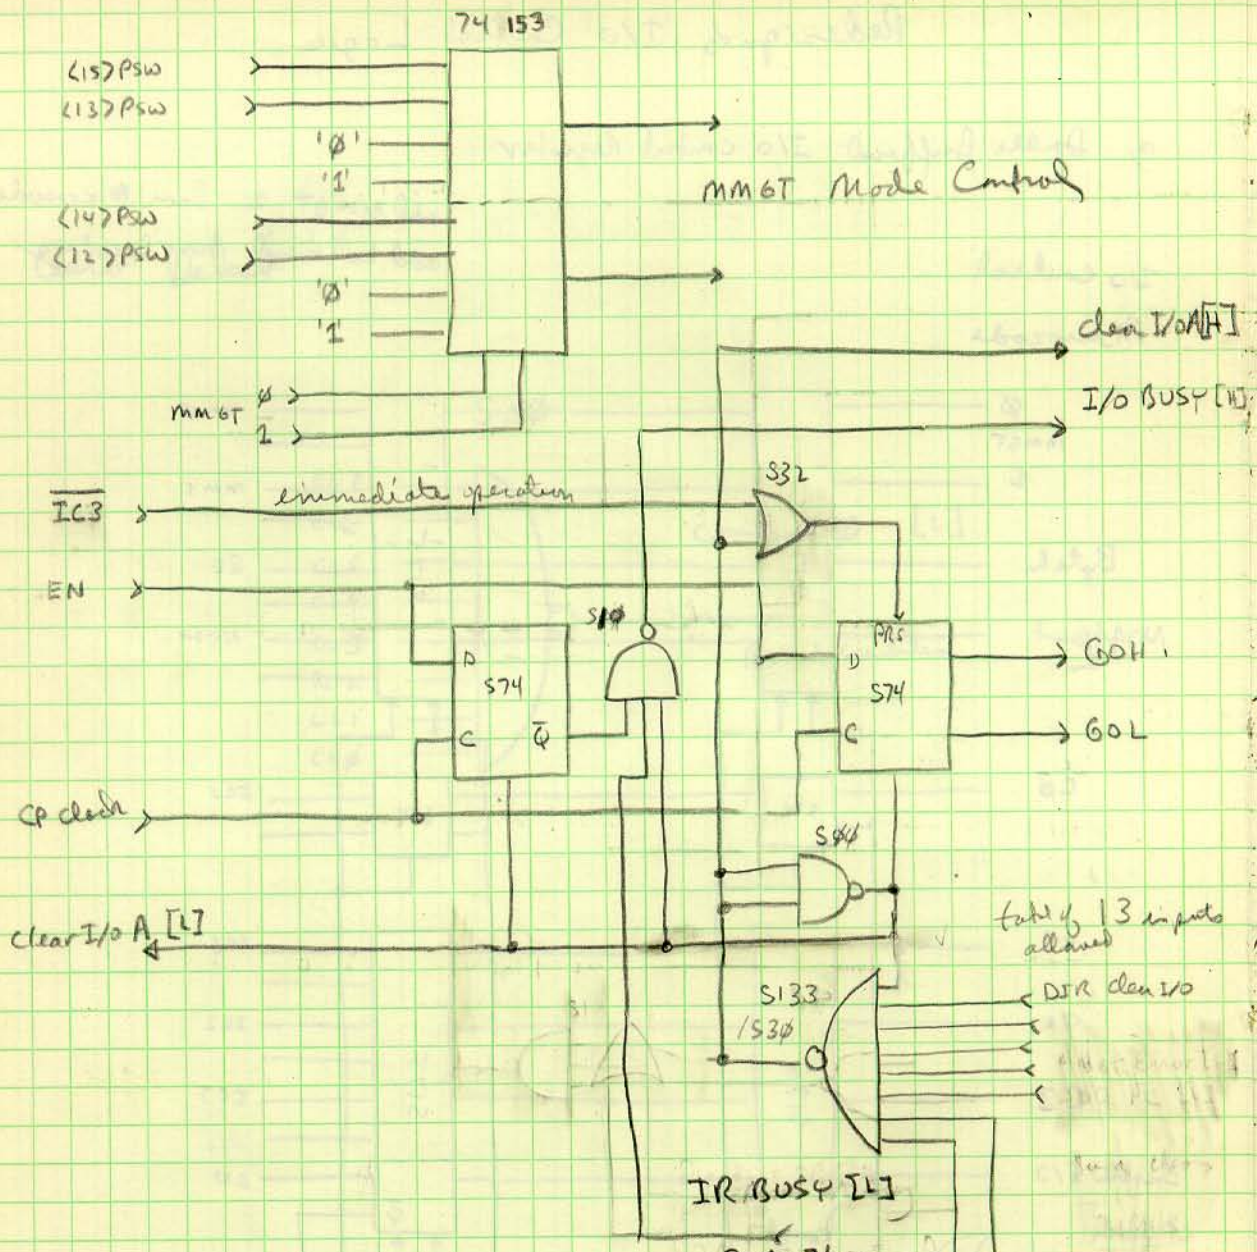 74 153
<15>PSW
<13>PSW
'Ø'
'1'
<14>PSW
<12>PSW
'Ø'
'1'
MMGT Mode Control
MMGT Ø
1
clear I/O A[H]
I/O BUSY [H]
S32
IC3
immediate operation
EN
S1Ø
D
S74
C Q̅
PRS
D
S74
C
GOH
GOL
CP clock
SØ4
clear I/O A [L]
total of 13 inputs
allowed
S133
/S3Ø
DIR clear I/O
IR BUSY [L]